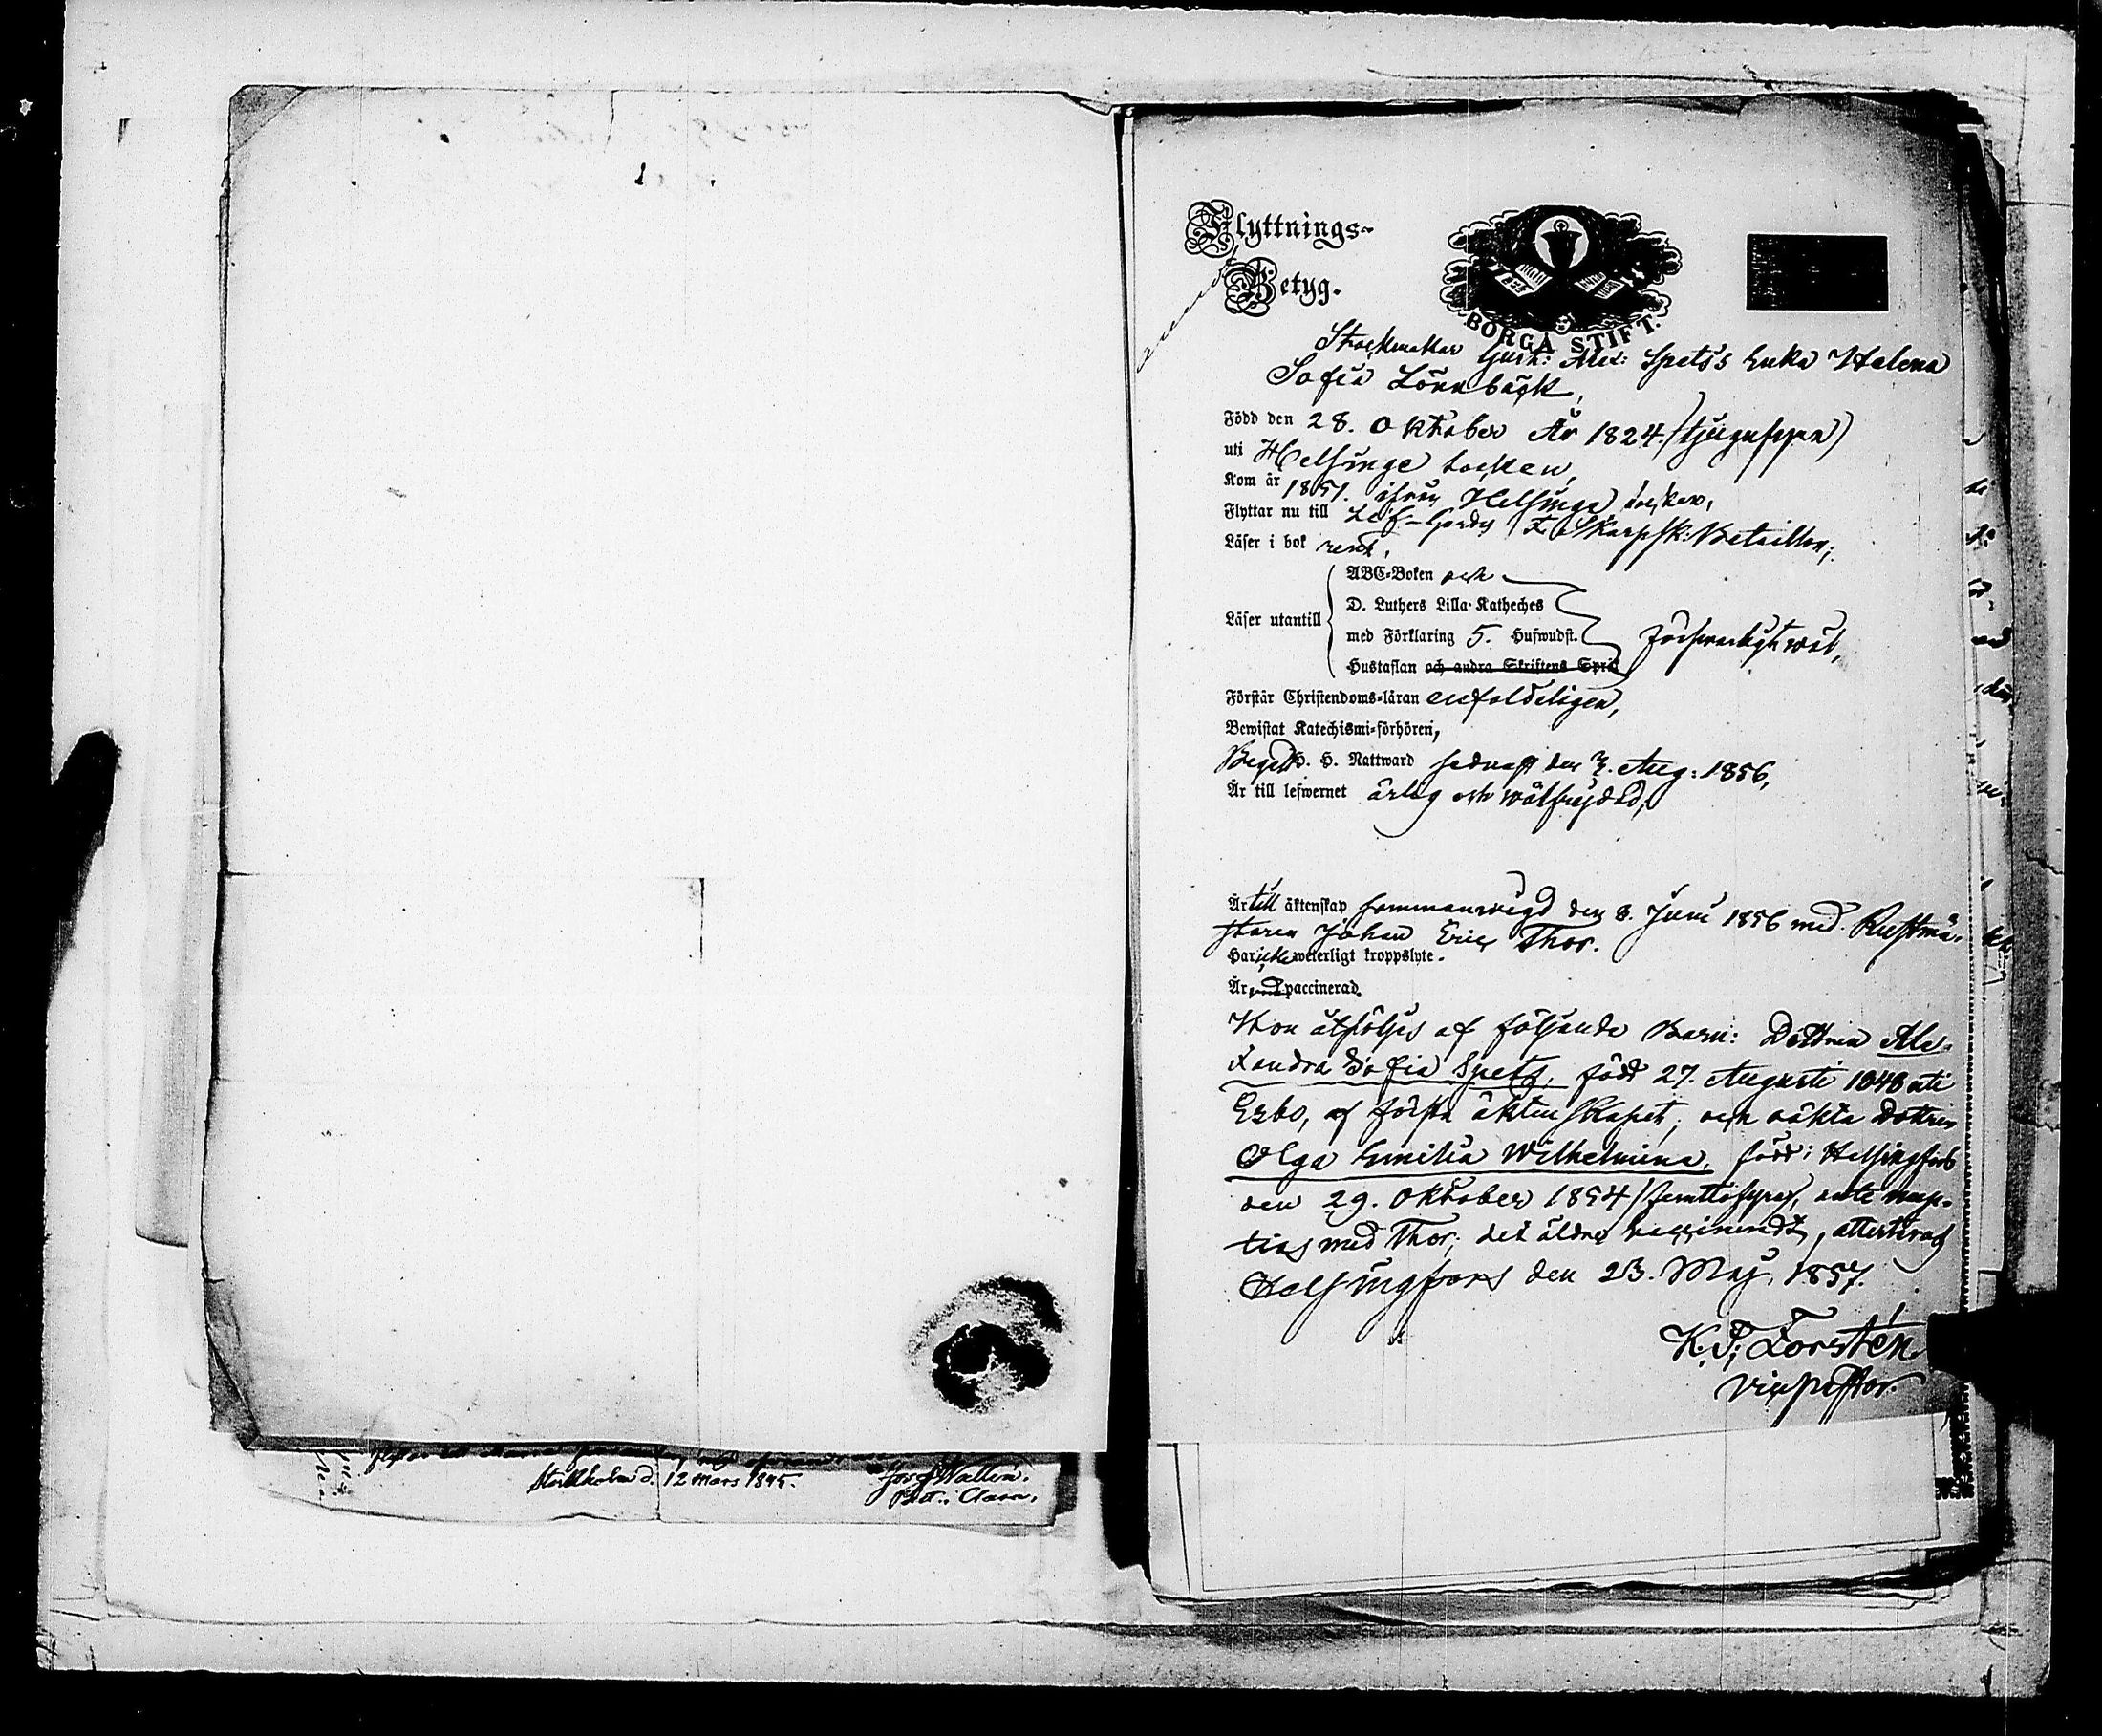 Flyttnings-
Betyg.
BORGÅ STIFT.
Gust: Alex: Spets's Enka Helena
Sofia Lönnbäck,
Född den 28. Oktober År 1824. (tjugufyra)
uti Helsinge socken,
Kom år 1851. ifrån Helsinge socken,
Flyttar nu till Lif-Gardes F. Skarpsk: Bataillon;
Läser i bok rent,
ABC-Boken och
D. Luthers Lilla Katheches
Läser utantill
med Förklaring 5. Hufwudst.
försvarligt wäl,
Hustaflan och andra Skriftens Språk
Förstår Christendoms-läran enfaldeligen,
Bewistat Katechismi-förhören,
Begått H. H. Nattward sednast den 3. Aug: 1856,
Är till lefwernet ärlig och wälfrejdad,
Är till äktenskap sammanwigd den 8. Juni 1856 med Rustmä-
staren Johan Eric Thor.
Har icke weterligt kroppslyte.
Är vaccinerad.
Hon åtföljes af följande Barn: Dottren Ale-
xandra Sofia Spets, född 27. Augusti 1848 uti
Esbo, af första äktenskapet, och oäkta Dottren
Olga Emilia Wilhelmina, född i Helsingfors
den 29. Oktober 1854 (femtiofyra), ante nup-
tias med Thor; det äldre vaccineradt, attesterad
Helsingfors den 23. Maj 1857.
K. J. Forstén
Vicepastor.
Stockholm d. 12 Mars 1845.
Jos. Wallin.
Past. i Clara.